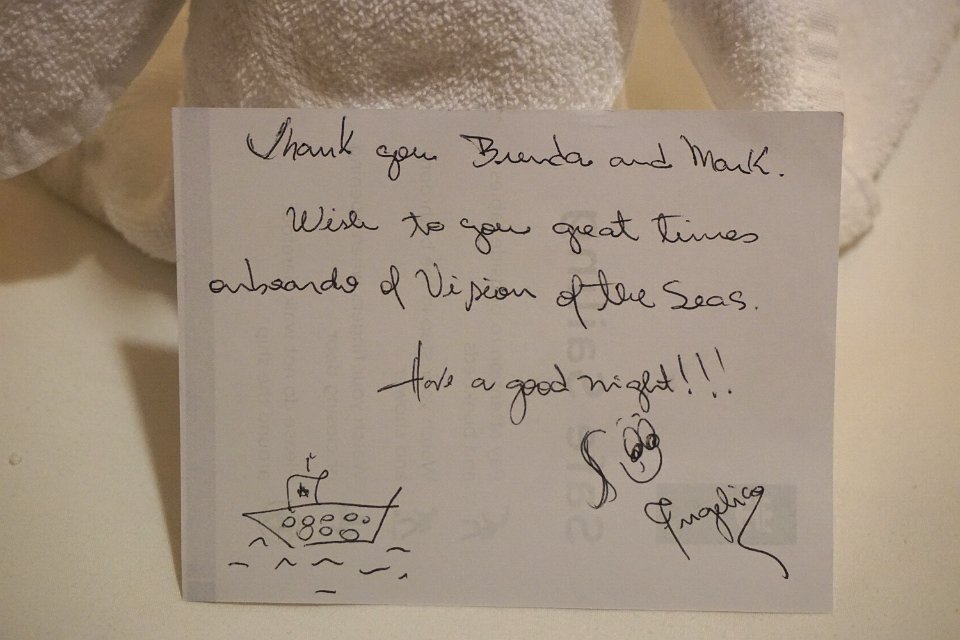 Thank you Brenda and Mark.
Wish to you great times
onboard of Vision of the Seas.
Have a good night!!!
Angelica